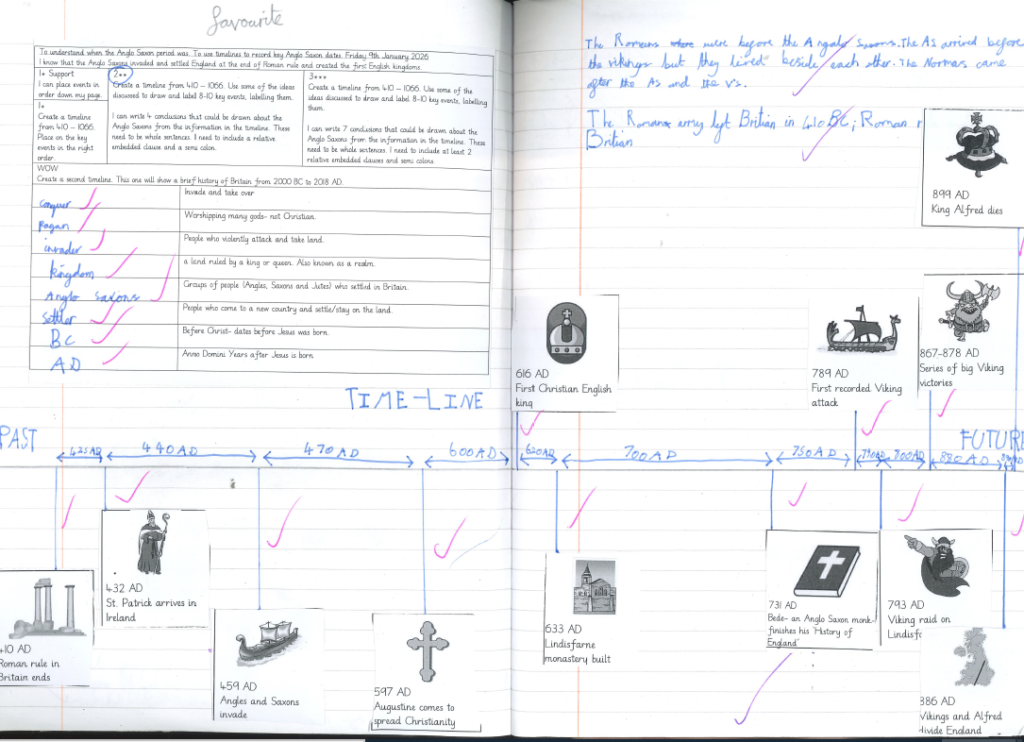 favourite
To understand when the Anglo Saxon period was. To use timelines to record key Anglo Saxon dates. Friday 9th January 2026
I know that the Anglo Saxons invaded and settled England at the end of Roman rule and created the first English kingdoms.
1* Support
I can place events in
order down my page.
1*
Create a timeline
from 410 – 1066.
Place on the key
events in the right
order.
2**
Create a timeline from 410 – 1066. Use some of the ideas
discussed to draw and label 8-10 key events, labelling them.
I can write 4 conclusions that could be drawn about the
Anglo Saxons from the information in the timeline. These
need to be whole sentences. I need to include a relative
embedded clause and a semi colon.
3***
Create a timeline from 410 – 1066. Use some of the
ideas discussed to draw and label 8-10 key events, labelling
them.
I can write 7 conclusions that could be drawn about the
Anglo Saxons from the information in the timeline. These
need to be whole sentences. I need to include at least 2
relative embedded clauses and semi colons.
WOW
Create a second timeline. This one will show a brief history of Britain from 2000 BC to 2018 AD.
conquer Invade and take over
Pagan Worshipping many gods- not Christian.
invader People who violently attack and take land.
kingdom a land ruled by a king or queen. Also known as a realm.
Anglo saxons Groups of people (Angles, Saxons and Jutes) who settled in Britain.
settler People who come to a new country and settle/stay on the land.
BC Before Christ- dates before Jesus was born.
AD Anno Domini Years after Jesus is born
TIME-LINE
PAST
425AD 440AD 470AD 600AD
410 AD
Roman rule in
Britain ends
432 AD
St. Patrick arrives in
Ireland
459 AD
Angles and Saxons
invade
597 AD
Augustine comes to
spread Christianity
The Romans were before the Anglo saxons. The AS arrived before
the vikings but they lived beside each other. The Normans came
after the AS and the VS.
The Romans army left Britian in 410 BC; Roman r
Britian
899 AD
King Alfred dies
616 AD
First Christian English
king
789 AD
First recorded Viking
attack
867-878 AD
Series of big Viking
victories
FUTURE
620AD 700AD 750AD 790AD 800AD 880AD
633 AD
Lindisfarne
monastery built
731 AD
Bede- an Anglo Saxon monk-
finishes his 'History of
England'
793 AD
Viking raid on
Lindisf
886 AD
Vikings and Alfred
divide England